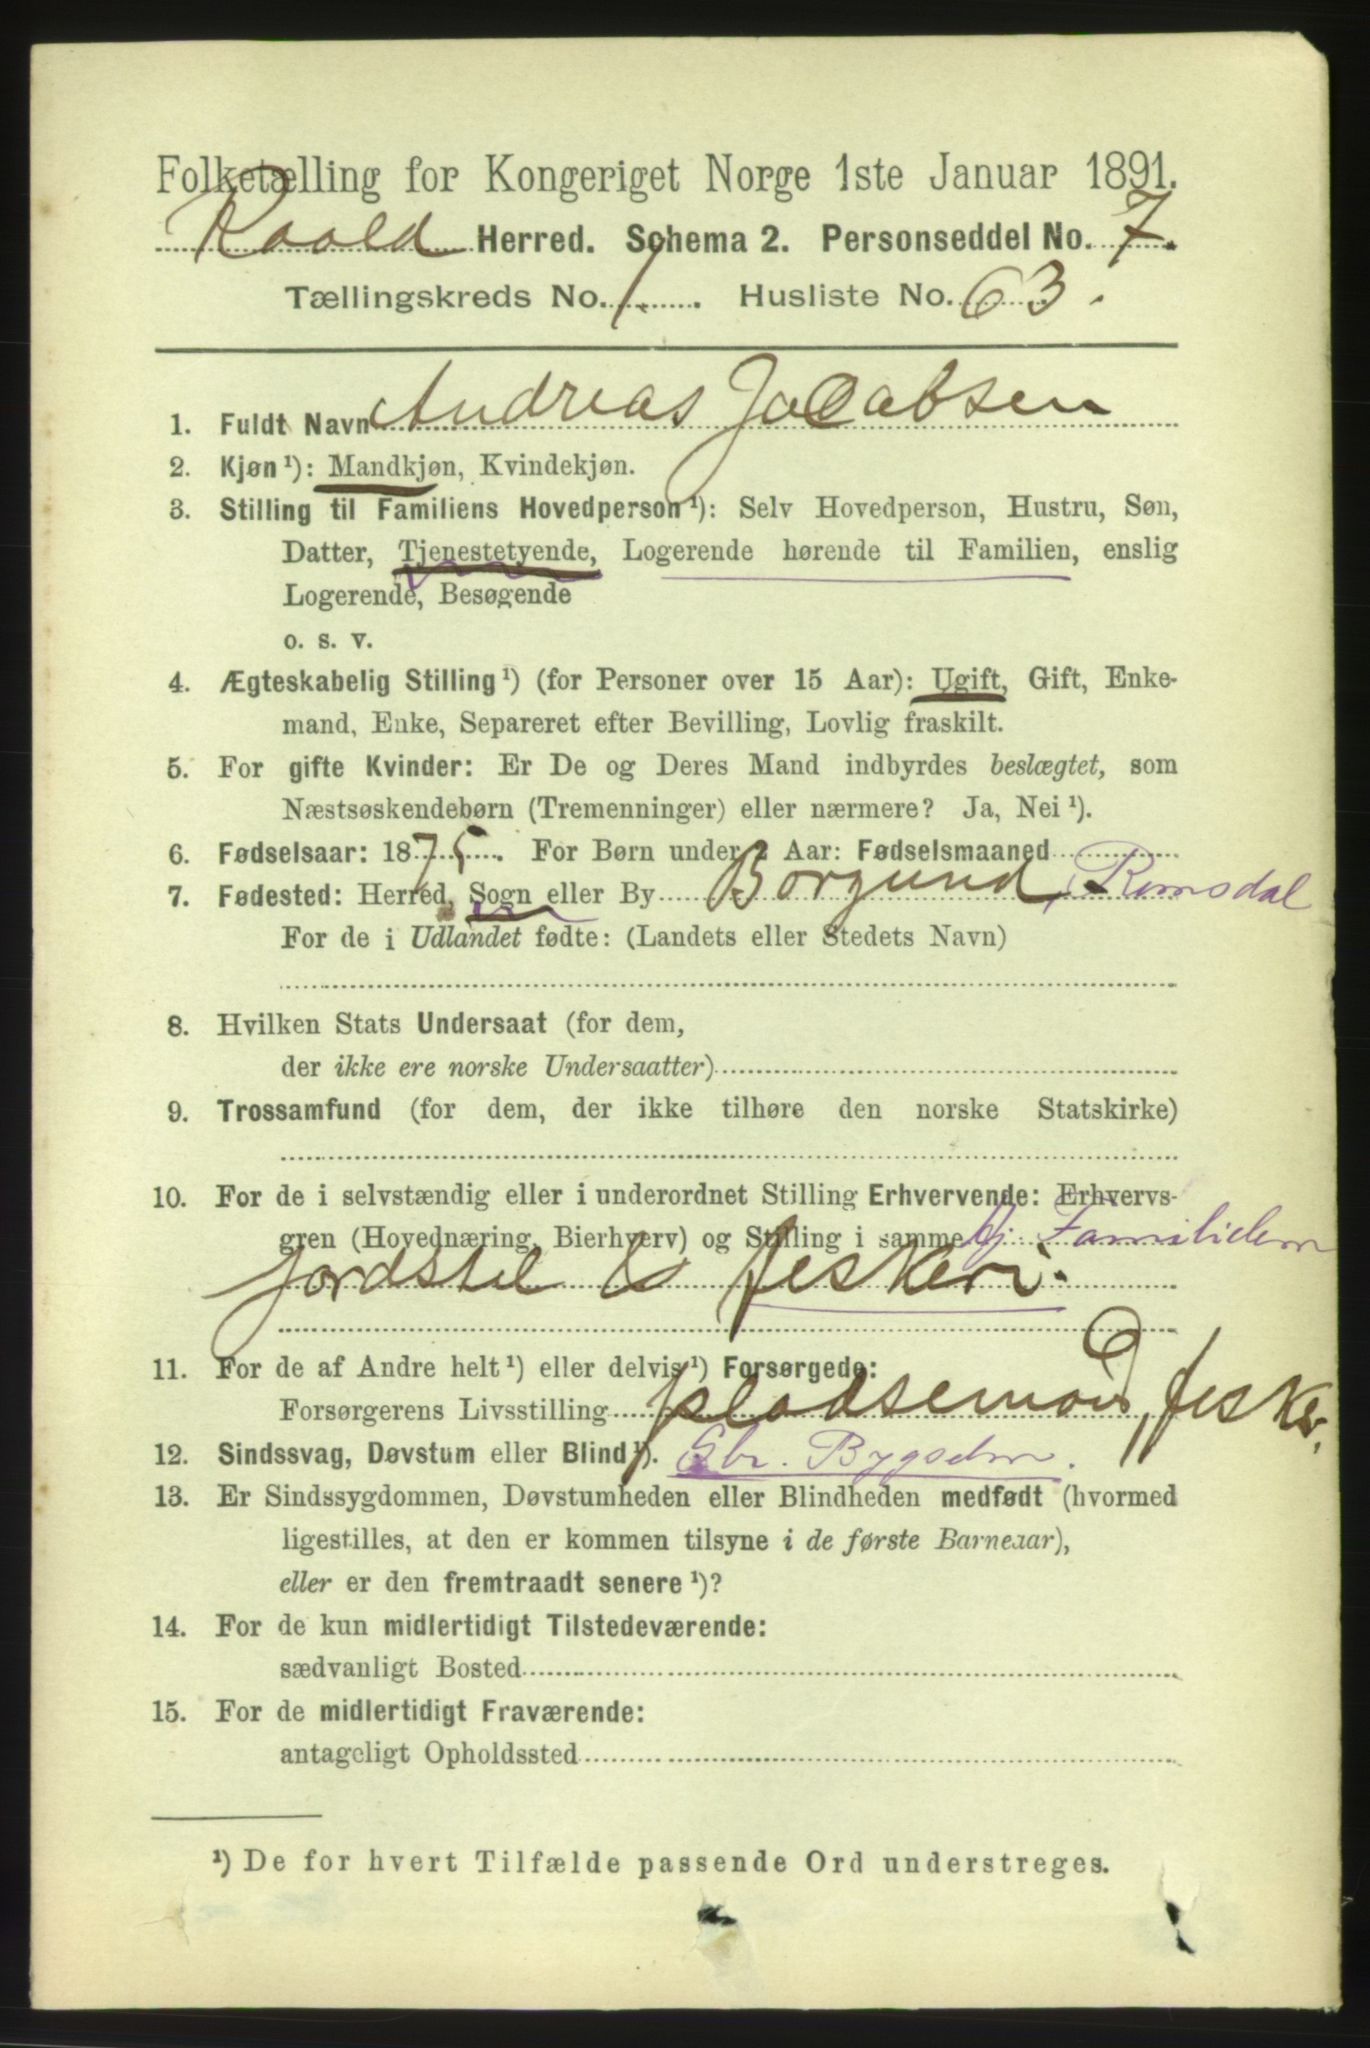 Folketælling for Kongeriget Norge 1ste Januar 1891.
Roald Herred. Schema 2. Personseddel No. 7.
Tællingskreds No. 1. Husliste No. 63.
1. Fuldt Navn Andreas Jacabsen
2. Kjøn¹): Mandkjøn, Kvindekjøn.
3. Stilling til Familiens Hovedperson¹): Selv Hovedperson, Hustru, Søn,
Datter, Tjenestetyende, Logerende hørende til Familien, enslig
Logerende, Besøgende
o. s. v.
4. Ægteskabelig Stilling¹) (for Personer over 15 Aar): Ugift, Gift, Enke-
mand, Enke, Separeret efter Bevilling, Lovlig fraskilt.
5. For gifte Kvinder: Er De og Deres Mand indbyrdes beslægtet, som
Næstsøskendebørn (Tremenninger) eller nærmere? Ja, Nei¹).
6. Fødselsaar: 1875. For Børn under 2 Aar: Fødselsmaaned
7. Fødested: Herred, Sogn eller By Borgund, Romsdal
For de i Udlandet fødte: (Landets eller Stedets Navn)
8. Hvilken Stats Undersaat (for dem,
der ikke ere norske Undersaatter)
9. Trossamfund (for dem, der ikke tilhøre den norske Statskirke)
10. For de i selvstændig eller i underordnet Stilling Erhvervende: Erhvervs-
gren (Hovednæring, Bierhverv) og Stilling i samme
jordstel & feskeri.
11. For de af Andre helt¹) eller delvis¹) Forsørgede:
Forsørgerens Livsstilling pladsemand, fesker,
12. Sindssvag, Døvstum eller Blind¹).
13. Er Sindssygdommen, Døvstumheden eller Blindheden medfødt (hvormed
ligestilles, at den er kommen tilsyne i de første Barneaar),
eller er den fremtraadt senere¹)?
14. For de kun midlertidigt Tilstedeværende:
sædvanligt Bosted
15. For de midlertidigt Fraværende:
antageligt Opholdssted
¹) De for hvert Tilfælde passende Ord understreges.